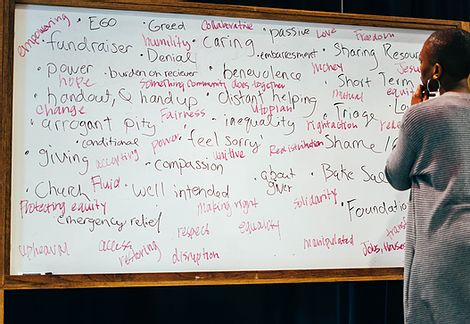 empowering • EGO • Greed Collaborative • passive Love Freedom
• fundraiser humility • Caring • embarresment • Sharing
Denial
• power • burden on reciever • benevolence Money • Short Term Jesus
hope something community does together
• handout, & hand up • distant helping mutual
change Fairness utopian • Triage
• arrogant pity • inequality right action
• conditional power • feel sorry Redistribution • Shame
• giving accepting unitive
• compassion
• about giver • Bake
• Church Fluid • well intended solidarity
Protecting equity Making right • Foundation
• Emergency relief respect equality
upheaval access restoring disruption manipulated